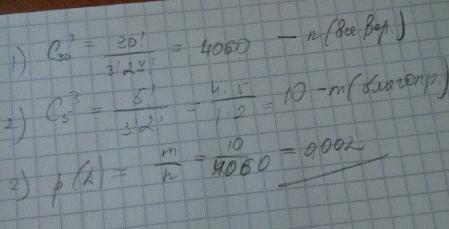 1) C₃₀³ = 30! / 3!27! = 4060 – n (все вар.)
2) C₅³ = 5! / 3!2! = 4·5 / 1·2 = 10 – m (благопр.)
3) p(A) = m / n = 10 / 4060 = 0,002